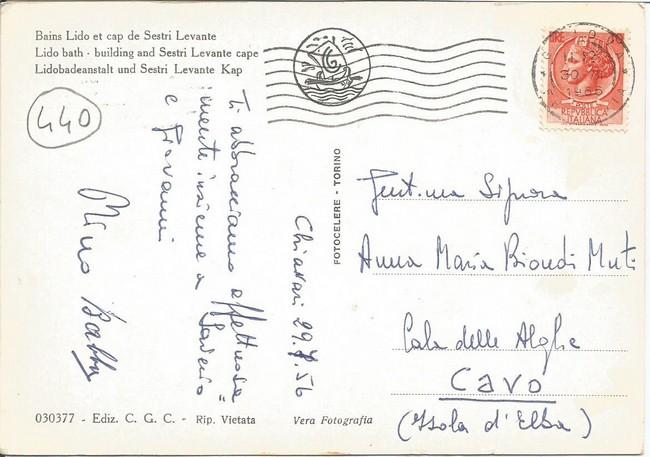 Bains Lido et cap de Sestri Levante
Lido bath - building and Sestri Levante cape
Lidobadeanstalt und Sestri Levante Kap
440
Chiavari 29.7.56
Ti abbracciamo affettuosa=
mente insieme a Saverio
e Giovanni
Nino
FOTOCELERE - TORINO
LIRE
POSTE
REPVBBLICA
ITALIANA
30
Gent.ma Signora
Anna Maria Biondi Muti
Cala delle Alghe
CAVO
(Isola d'Elba)
030377 - Ediz. C. G. C. - Rip. Vietata
Vera Fotografia